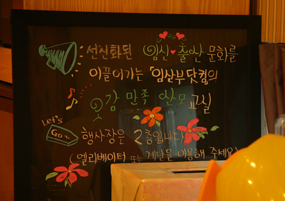 선진화된 임신♥출산 문화를
이끌어가는 「임산부닷컴」의
오감 만족 산모교실
Let's Go~
행사장은 2층입니다
(엘리베이터 또는 계단을 이용해 주세요)